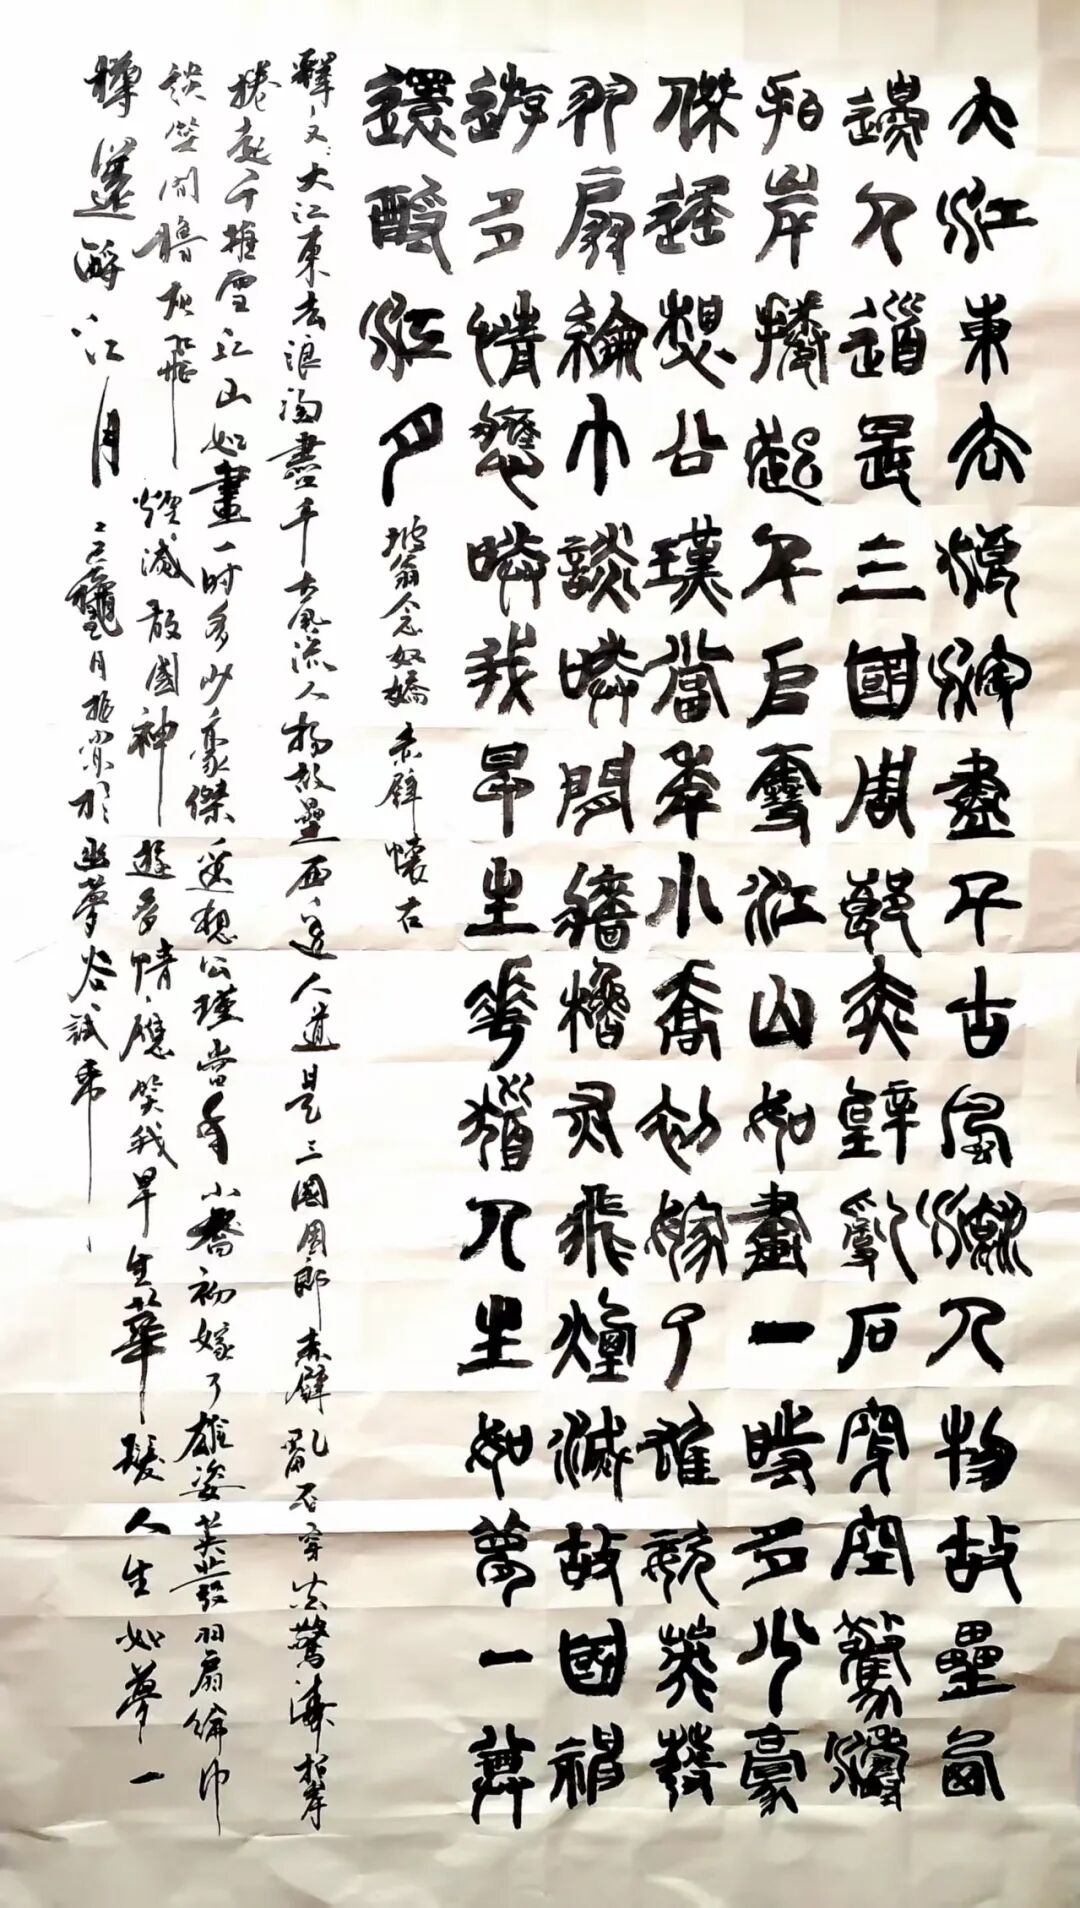 大江東去浪淘盡千古風流人物故壘西
邊人道是三國周郎赤壁亂石穿空驚濤
拍岸捲起千堆雪江山如畫一時多少豪
傑遥想公瑾當年小喬初嫁了雄姿英發
羽扇綸巾談笑間檣櫓灰飛煙滅故國神
遊多情應笑我早生華髮人生如夢一尊
還酹江月
坡翁念奴嬌赤壁懷古
釋文：大江東去浪淘盡千古風流人物故壘西邊人道是三國周郎赤壁亂石穿空驚濤拍岸
捲起千堆雪江山如畫一時多少豪傑遥想公瑾當年小喬初嫁了雄姿英發羽扇綸巾
談笑間檣櫓灰飛煙滅故國神遊多情應笑我早生華髮人生如夢一
樽還酹江月
月於幽夢谷試帚